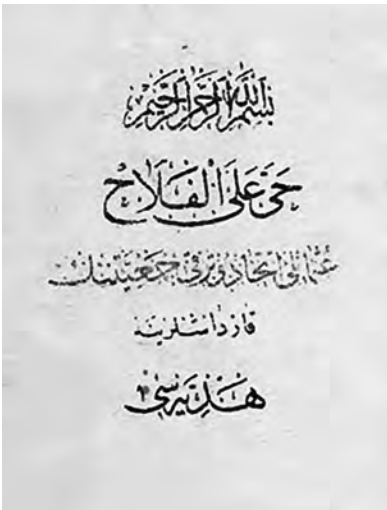 بسم الله الرحمن الرحيم
حَىَّ عَلَى الْفَلَاحْ
عثمانلى اتحاد و ترقى جمعيتنك
قارداشلرينه
هديه سى